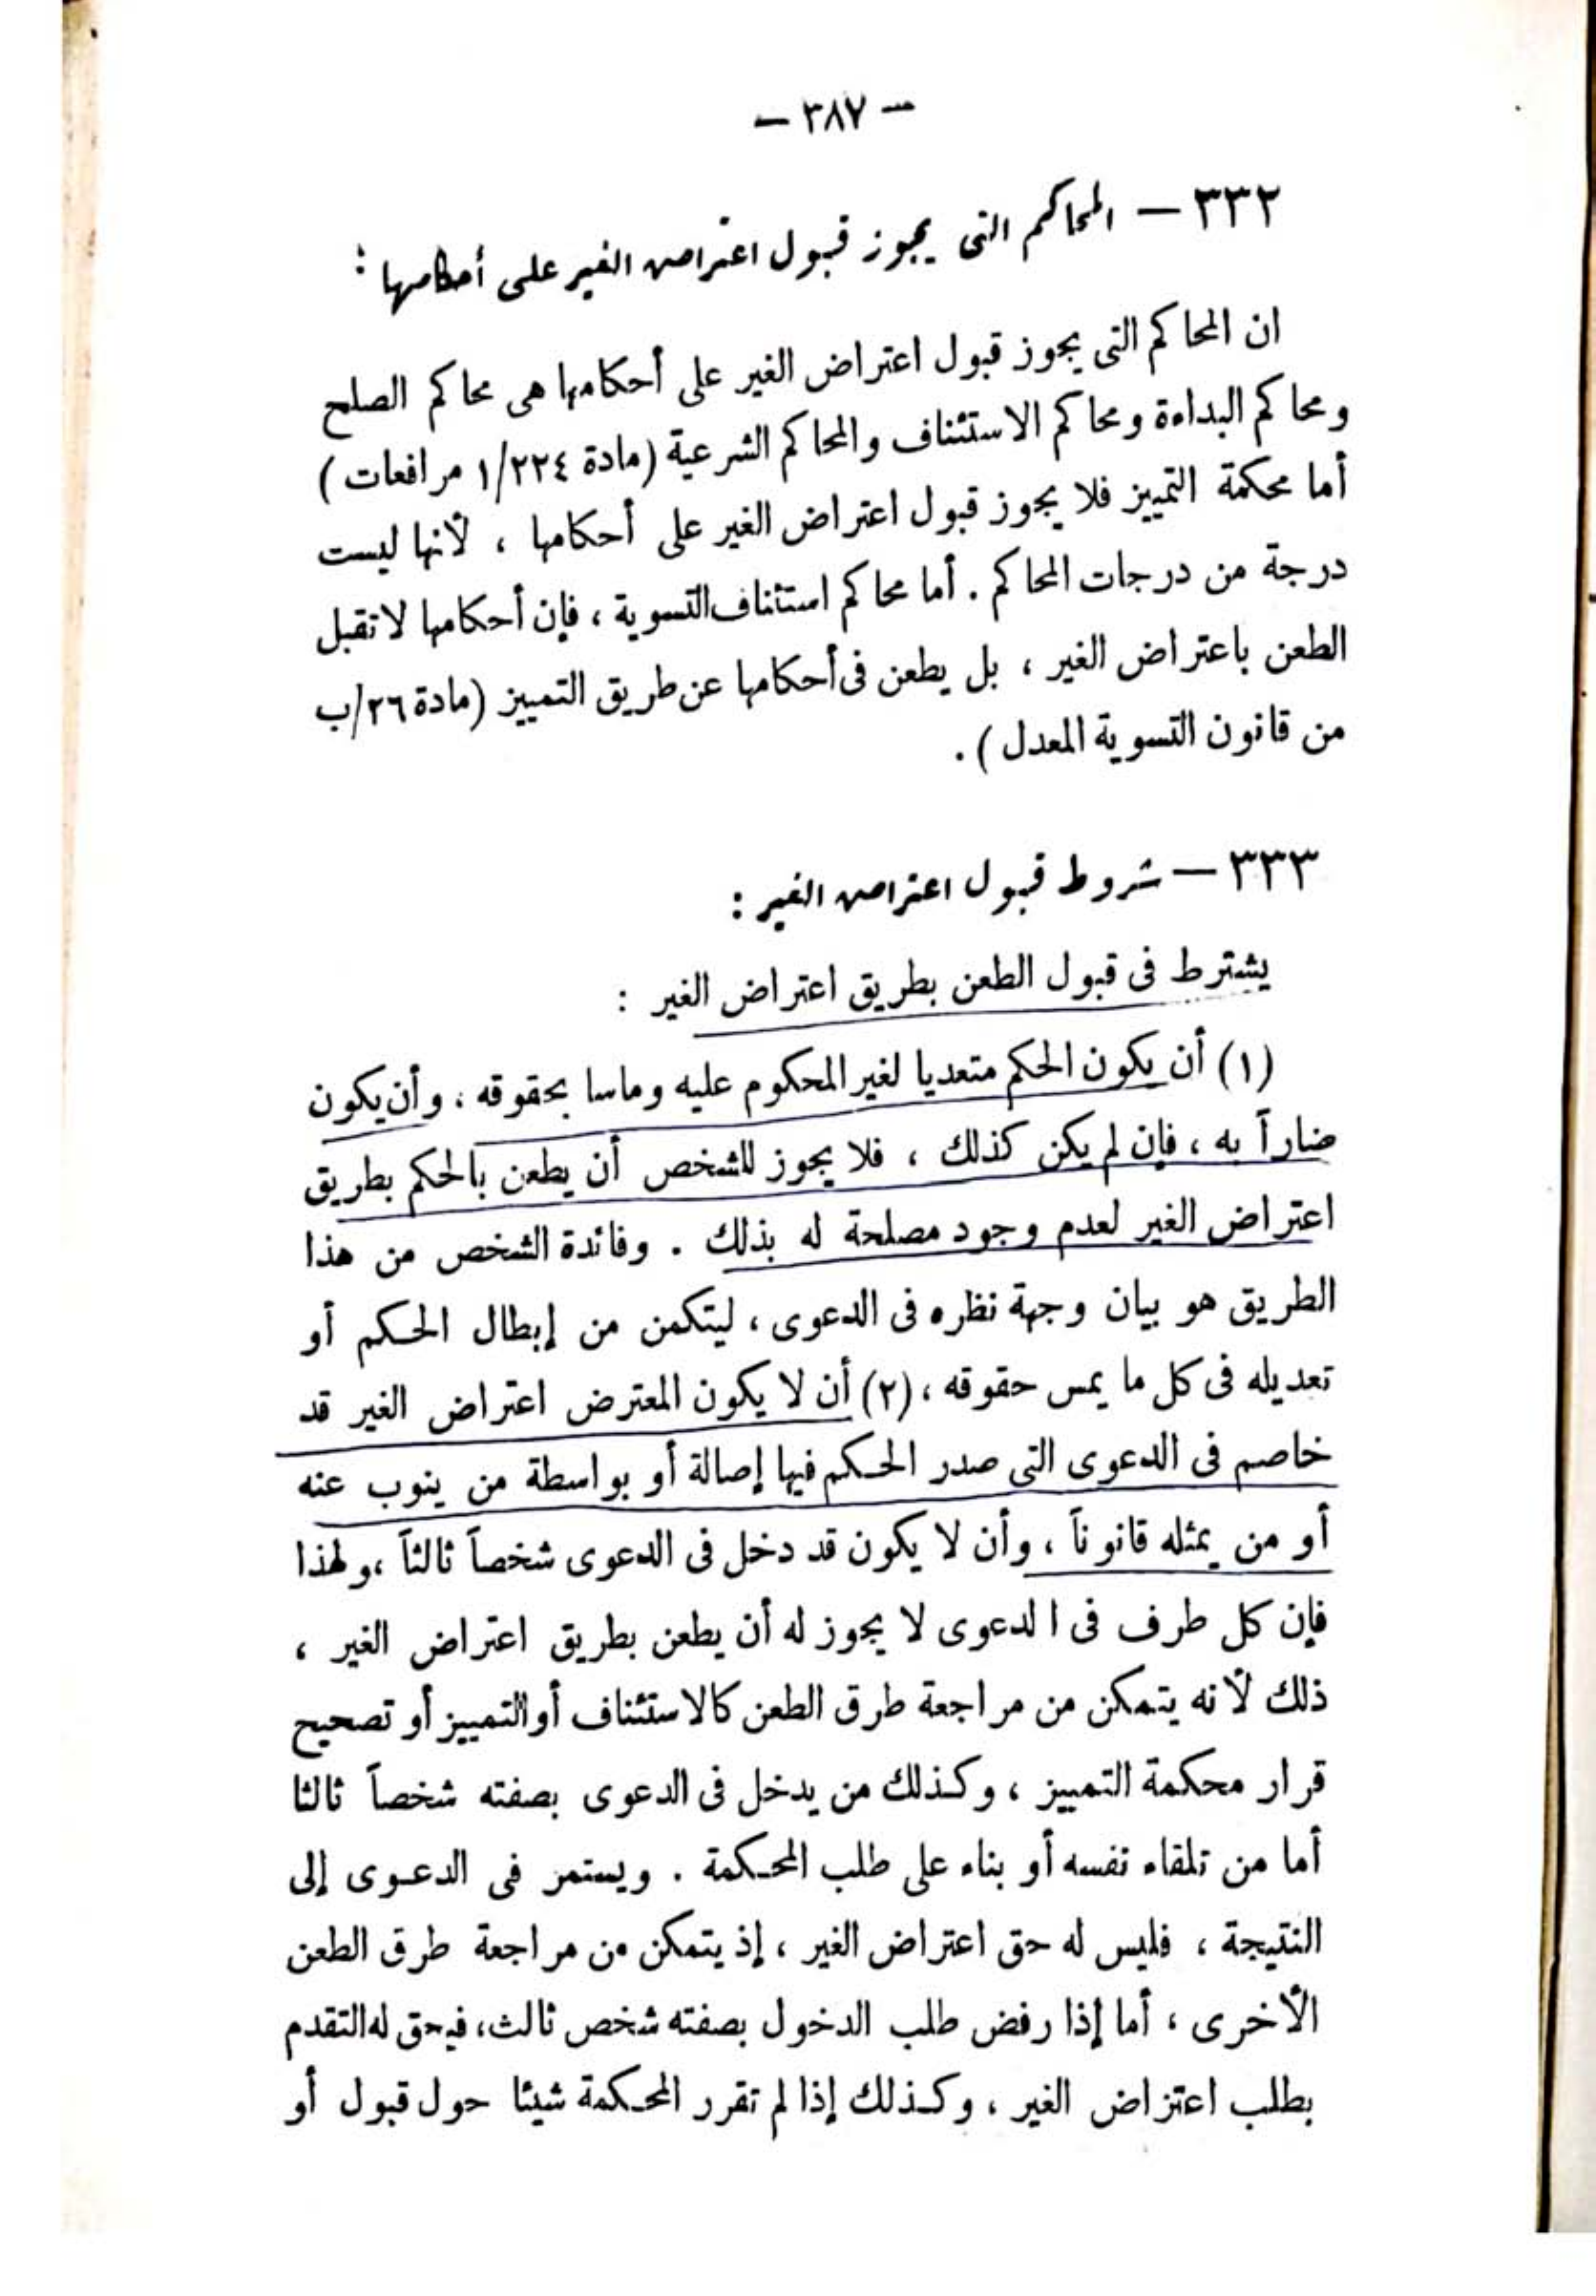 — ٣٨٧ —
٣٣٢ — المحاكم التى يجوز قبول اعتراض الغير على أحكامها :
ان المحاكم التى يجوز قبول اعتراض الغير على أحكامها هى محاكم الصلح
ومحاكم البداءة ومحاكم الاستئناف والمحاكم الشرعية (مادة ١/٢٢٤ مرافعات)
أما محكمة التمييز فلا يجوز قبول اعتراض الغير على أحكامها ، لأنها ليست
درجة من درجات المحاكم . أما محاكم استئناف التسوية ، فإن أحكامها لا تقبل
الطعن باعتراض الغير ، بل يطعن فى أحكامها عن طريق التمييز (مادة ٢٦/ب
من قانون التسوية المعدل) .
٣٣٣ — شروط قبول اعتراض الغير :
يشترط فى قبول الطعن بطريق اعتراض الغير :
(١) أن يكون الحكم متعديا لغير المحكوم عليه وماسا بحقوقه ، وأن يكون
ضاراً به ، فإن لم يكن كذلك ، فلا يجوز للشخص أن يطعن بالحكم بطريق
اعتراض الغير لعدم وجود مصلحة له بذلك . وفائدة الشخص من هذا
الطريق هو بيان وجهة نظره فى الدعوى ، ليتكمن من إبطال الحكم أو
تعديله فى كل ما يمس حقوقه ، (٢) أن لا يكون المعترض اعتراض الغير قد
خاصم فى الدعوى التى صدر الحكم فيها إصالة أو بواسطة من ينوب عنه
أو من يمثله قانوناً ، وأن لا يكون قد دخل فى الدعوى شخصاً ثالثاً ، ولهذا
فإن كل طرف فى الدعوى لا يجوز له أن يطعن بطريق اعتراض الغير ،
ذلك لأنه يتمكن من مراجعة طرق الطعن كالاستئناف أو التمييز أو تصحيح
قرار محكمة التمييز ، وكذلك من يدخل فى الدعوى بصفته شخصاً ثالثا
أما من تلقاء نفسه أو بناء على طلب المحكمة . ويستمر فى الدعوى إلى
النتيجة ، فليس له حق اعتراض الغير ، إذ يتمكن من مراجعة طرق الطعن
الأخرى ، أما إذا رفض طلب الدخول بصفته شخص ثالث، فيحق له التقدم
بطلب اعتزاض الغير ، وكذلك إذا لم تقرر المحكمة شيئا حول قبول أو